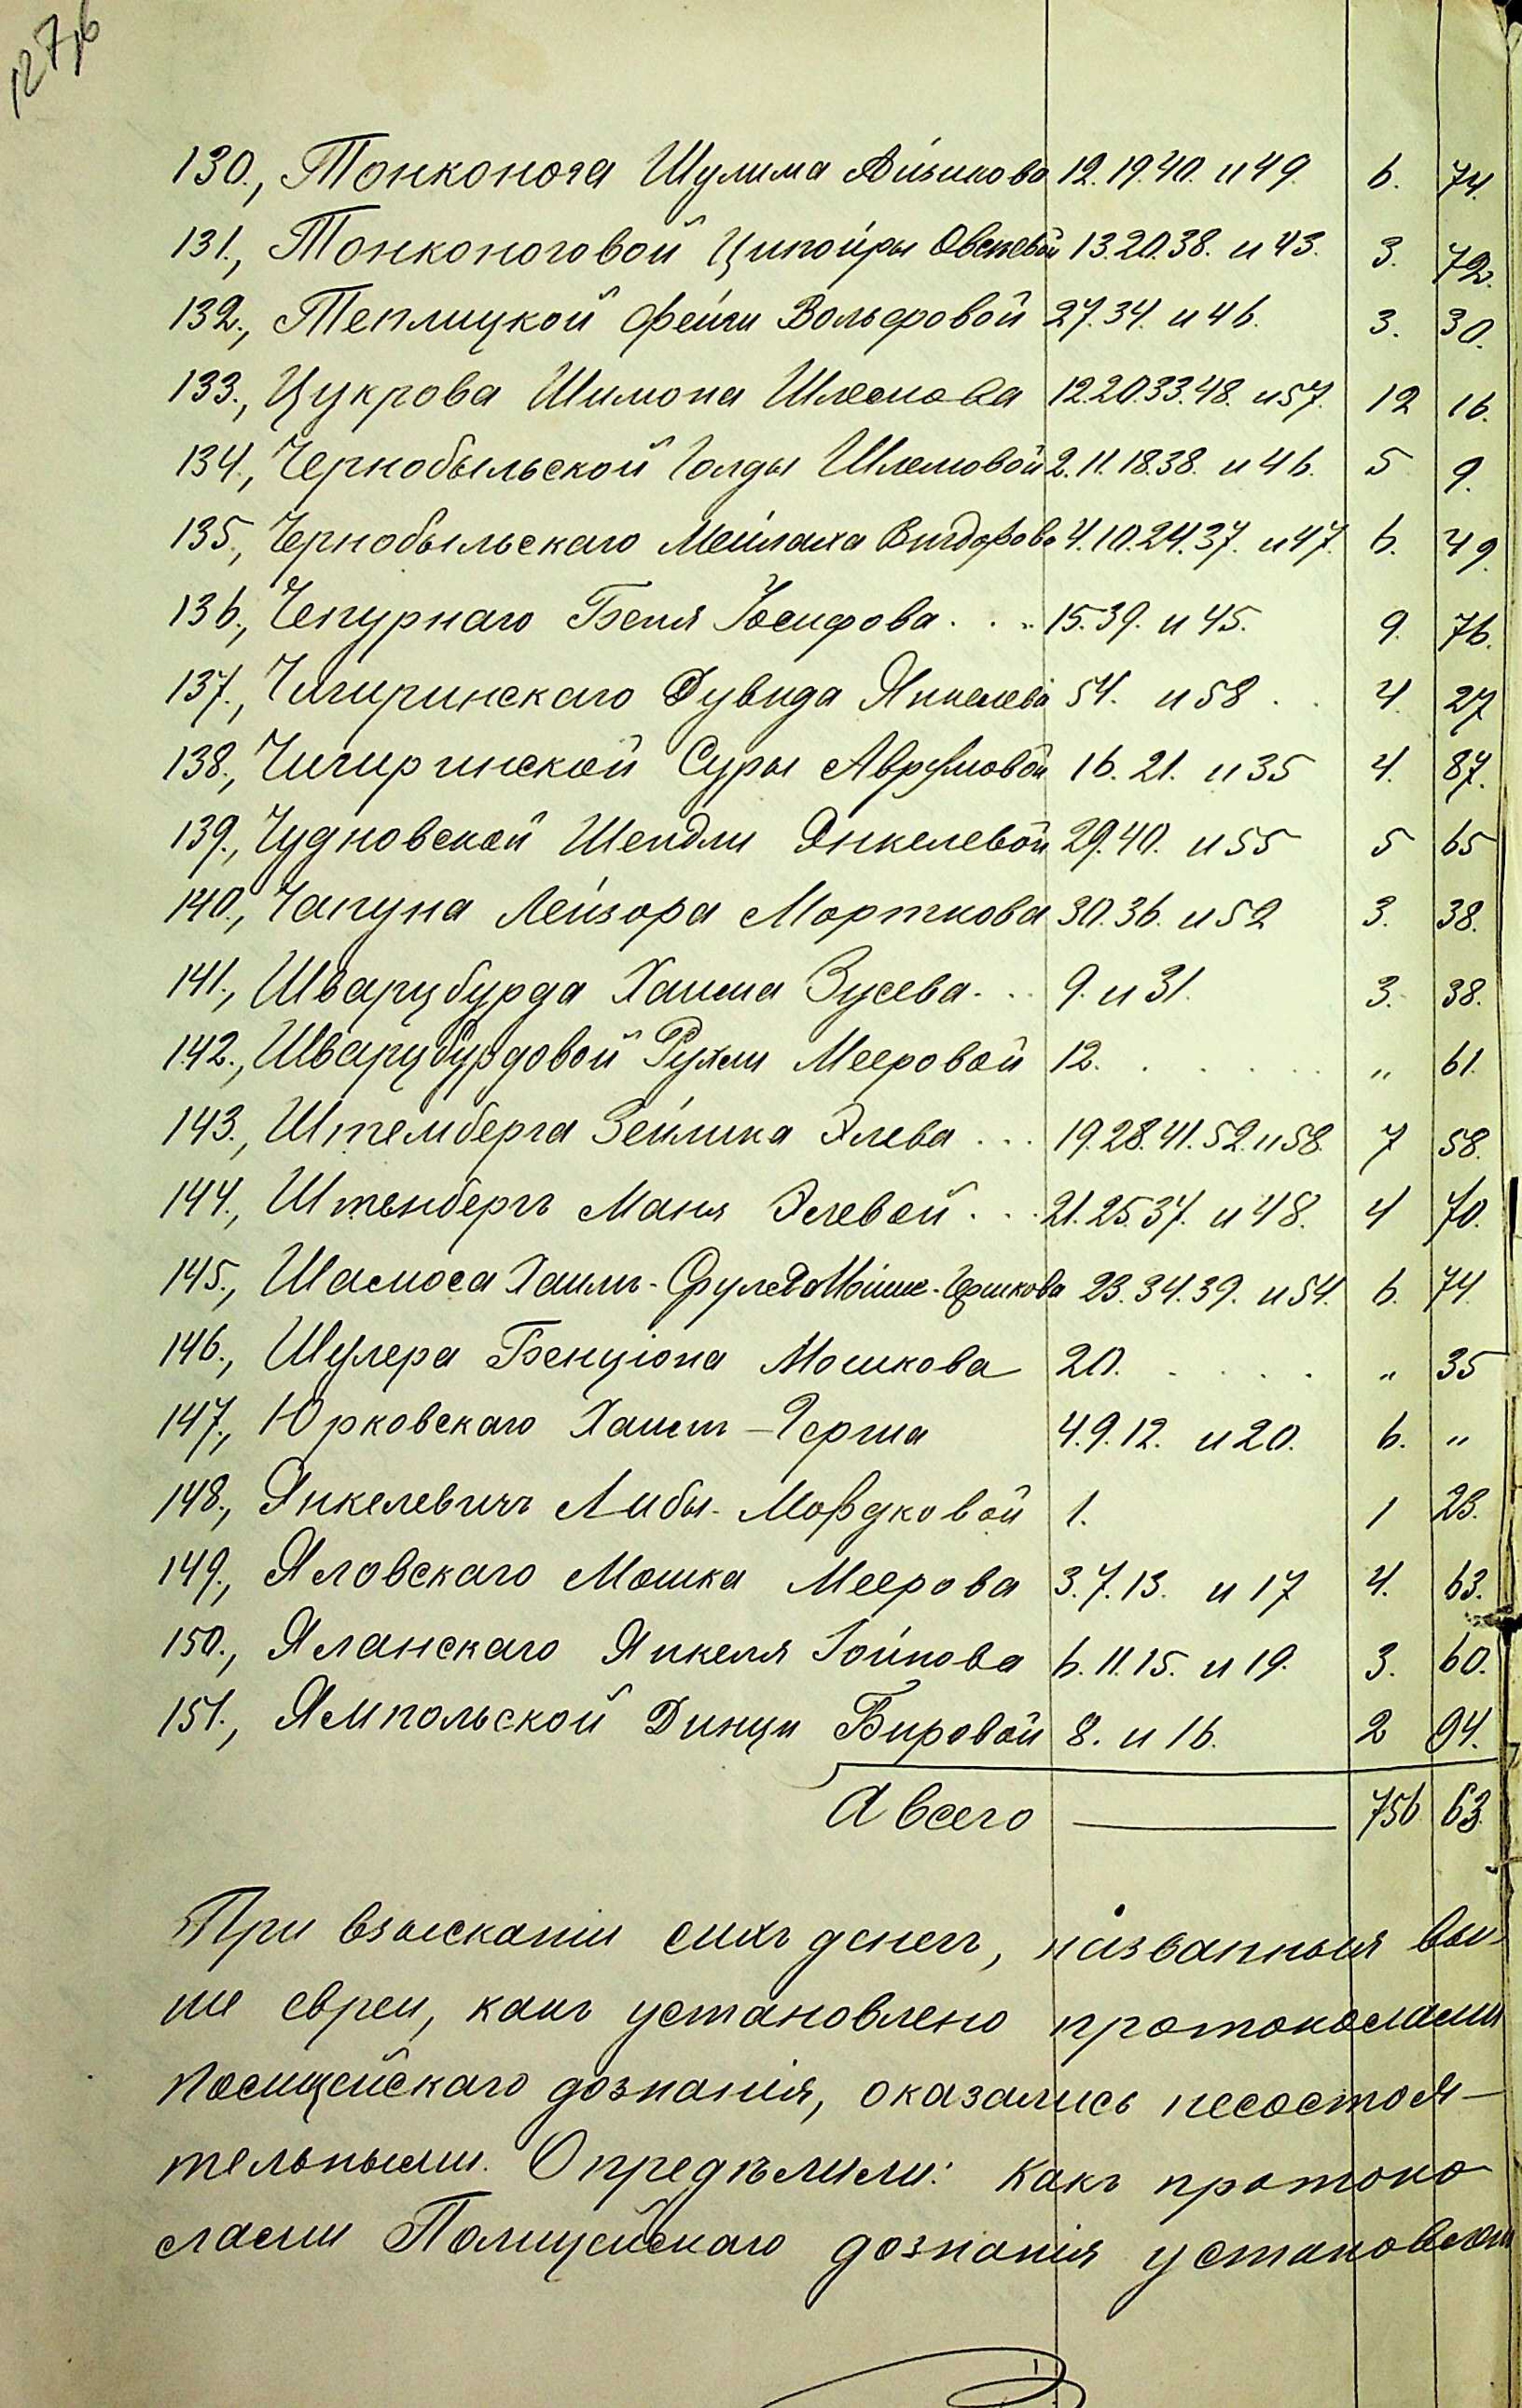 127,б
130., Тонконога Шулима Айзикова 12.19.40. и 49. 6. 74.
131., Тонконоговой Ципойры Овсеевой 13.20.38. и 43. 3. 72.
132., Теплицкой Фейги Вольфовой 27.34. и 46. 3. 30.
133., Цукрова Шимона Шлемова 12.20.33.48. и 57. 12 16.
134., Чернобыльской Голды Шлемовой 2.11.18.38. и 46. 5 9.
135., Чернобыльскаго Мейлаха Вигдорова 4.10.24.37. и 47. 6. 49.
136., Чепурнаго Беня Иосифова . . . 15.39. и 45. 9. 76.
137., Чигиринскаго Дувида Янкелева 54. и 58 . . 4. 27
138., Чигиринской Суры Аврумовой 16. 21. и 35 4. 87.
139., Чудновской Шендли Янкелевой 29.40. и 55 5 65
140., Чапуна Лейзора Морткова 30.36. и 52 3. 38.
141., Шварцбурда Хаима Зусева. . . 9. и 31. 3. 38.
142., Шварцбурдовой Рухли Мееровой 12. . . . . . . „ 61.
143., Штемберга Зейлика Элева . . . 19.28.41.52. и 58. 7 58.
144., Штенбергъ Маня Элевой . . . 21.25.37. и 48. 4 70.
145., Шамоса Хаимъ- 23.34.39. и 54. 6. 74.
146., Шулера Бенціона Мошкова 20. . . . . „ 35
147., Юрковскаго Хаимъ-Герша 4.9.12. и 20. 6. „
148., Янкелевичъ Либы Мордковой 1. 1 23.
149., Яловскаго Мошка Меерова 3.7.13. и 17 4. 63.
150., Яланскаго Янкеля Іойнова 6.11.15. и 19. 3. 60.
151., Ямпольской Динци Бировой 8. и 16. 2 94.
А всего — 756 63.
При взысканіи сихъ денегъ, названныя вы-
ше евреи, какъ установлено протоколами
полицейскаго дознанія, оказались несостоя-
тельными. Опредѣлили: какъ протоко-
лами Полицейскаго дознанія установлено